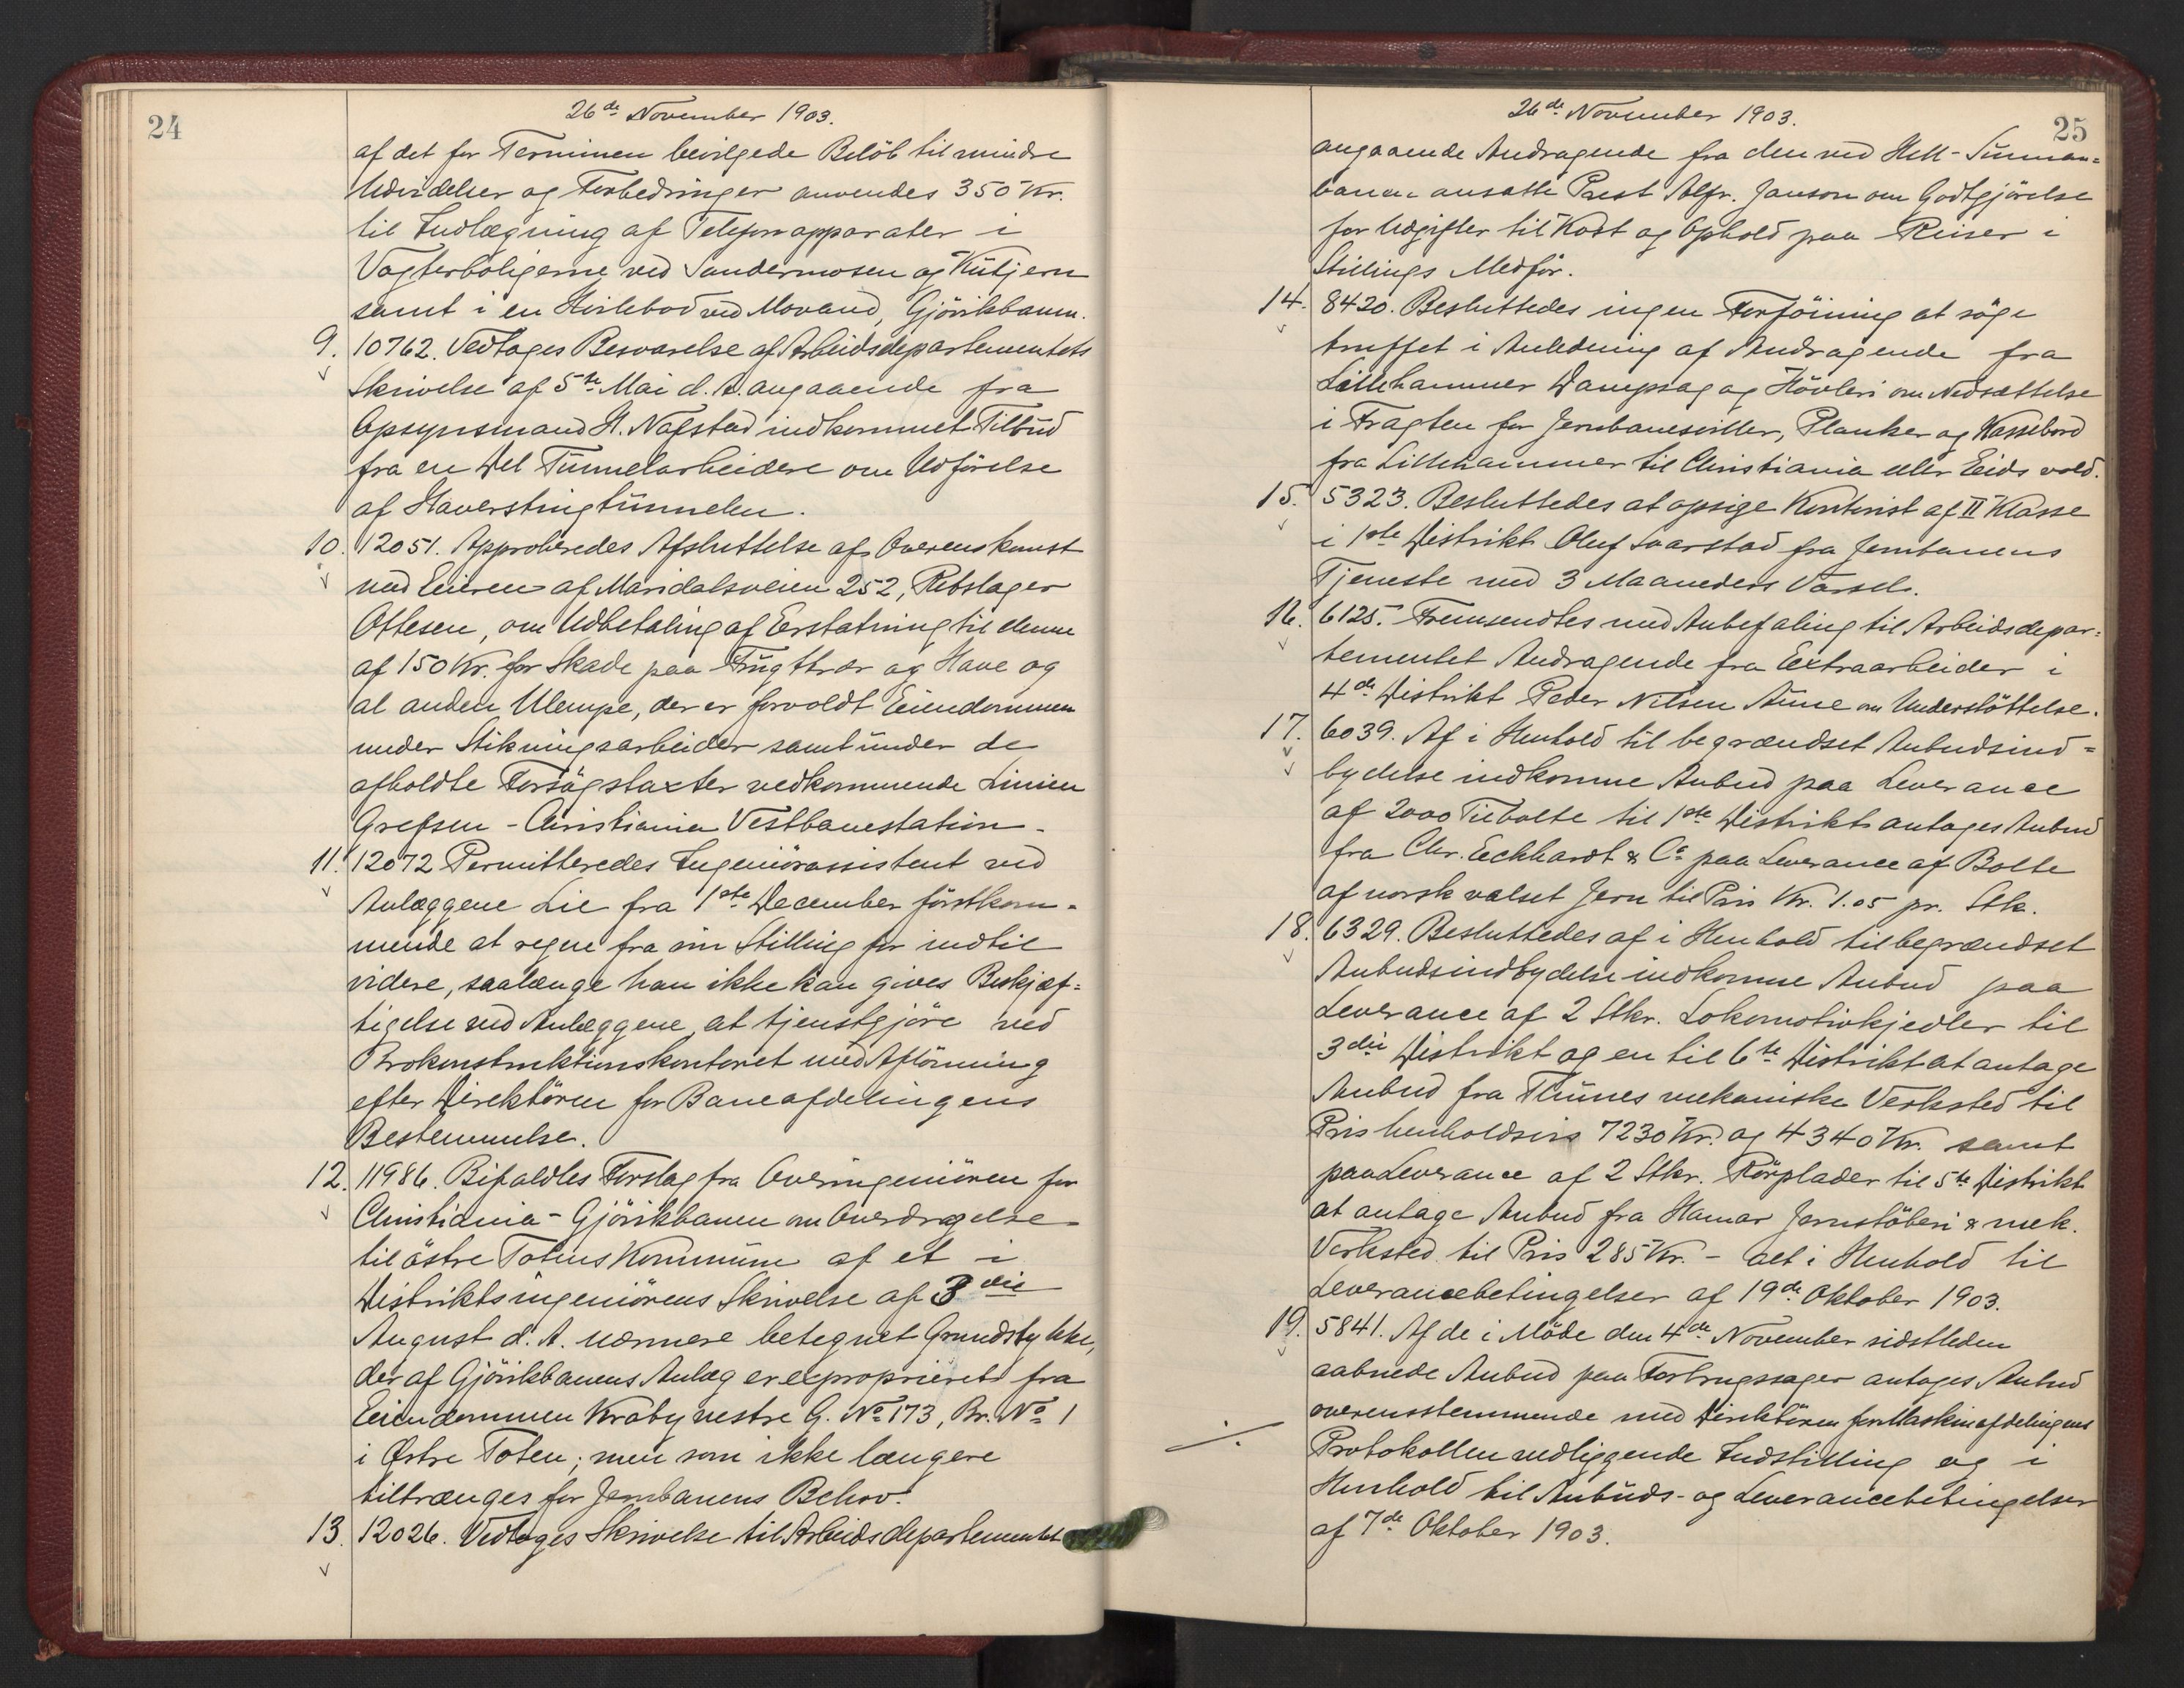 24
26de November 1903.
af det for Terminen bevilgede Beløb til mindre
Udvidelser og Forbedringer anvendes 350 Kr.
til Indlægning af Telefonapparater i
Vogterboligerne ved Sandermosen og Kutjern
samt i en Hvilebod ved Movand, Gjövikbanen.
9. 10762. Vedtoges Besvarelse af Arbeidsdepartementets
Skrivelse af 5te Mai d. A. angaaende fra
Opsynsmand H. Nafstad indkommet Tilbud
fra en Del Tunnelarbeidere om Udförelse
af Haverstingtunnelen.
10. 12051. Approberedes Afsluttelse af Overenskomst
med Eieren af Maridalsveien 252, Rebslager
Ottesen, om Udbetaling af Erstatning til denne
af 150 Kr. for Skade paa Frugttrær og Have og
al anden Ulempe, der er forvoldt Eiendommen
under Stikningsarbeider samt under de
afholdte Forsögstaxter vedkommende Linien
Grefsen - Christiania Vestbanestation.
11. 12072 Permitteredes Ingeniörassistent ved
Anlæggene Lie fra 1ste December förstkom-
mende at regne fra sin Stilling for indtil
videre, saalænge han ikke kan gives Beskjæf=
tigelse ved Anlæggene, at tjenstgjöre ved
Brokonstruktionskontoret med Aflönning
efter Direktören for Baneafdelingens
Bestemmelse.
12. 11986. Bifaldtes Forslag fra Overingeniören for
Christiania - Gjövikbanen om Overdragelse
til östre Totens Kommune af et i
Distriktsingeniörens Skrivelse af 3die
August d. A. nærmere betegnet Grundstykke,
der af Gjövikbanens Anlæg er exproprieret fra
Eiendommen Kraby vestre G. No 173, Br. No 1
i Østre Toten; men som ikke længere
tiltrænges for Jernbanens Behov.
13. 12026. Vedtoges Skrivelse til Arbeidsdepartementet
25
26de November 1903.
angaaende Andragende fra den ved Hell-Sunnan=
banen ansatte Præst Alfr. Janson om Godtgjörelse
for Udgifter til Kost og Ophold paa Reiser i
Stillings Medför.
14. 8420. Besluttedes ingen Forföining at söge
truffet i Anledning af Andragende fra
Lillehammer Dampsag og Hövleri om Nedsættelse
i Fragten for Jernbanesviller, Planker og Kassebord
fra Lillehammer til Christiania eller Eidsvold.
15. 5323. Besluttedes at opsige Kontorist af II Klasse
i 1ste Distrikt Oluf Svarstad fra Jernbanens
Tjeneste med 3 Maaneders Varsel.
16. 6125. Fremsendtes med Anbefaling til Arbeidsdepar=
tementet Andragende fra Extraarbeider i
4de Distrikt Peder Nilsen Aune om Understöttelse.
17. 6039. Af i Henhold til begrændset Anbudsind=
bydelse indkomne Anbud paa Leverance
af 2000 Tiebolte til 1ste Distrikt antages Anbud
fra Chr. Eckhardt & Co paa Leverance af Bolte
af norsk valset Jern til Pris Kr. 1.05 pr. Stk.
18. 6329. Besluttedes af i Henhold til begrændset
Anbudsindbydelse indkomne Anbud paa
Leverance af 2 Stkr. Lokomotivkjedler til
3die Distrikt og en til 6te Distrikt at antage
Anbud fra Thunes mekaniske Verksted til
Pris henholdsvis 7230 Kr. og 4340 Kr. samt
paa Leverance af 2 Stkr. Rörplader til 5te Distrikt
at antage Anbud fra Hamar Jernstöberi & mek.
Verksted til Pris 285 Kr. - alt i Henhold til
Leverancebetingelser af 19de Oktober 1903.
19. 5841. Af de i Möde den 4de November sidstleden
aabnede Anbud paa Forbrugssager antages Anbud
overensstemmende med Direktören for Maskinafdelingens
Protokollen vedliggende Indstilling og i
Henhold til Anbuds- og Leverancebetingelser
af 7de Oktober 1903.